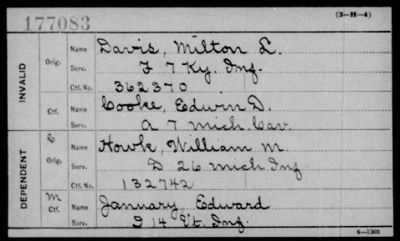 177083
(3-H-4)
INVALID
Orig.
Name Davis, Milton L.
Serv. F 7 Ky. Inf.
Ctf. No. 362370
Ctf.
Name Cooke, Edwin D.
Serv. A 7 Mich Cav.
DEPENDENT
C
Orig.
Name Howk, William M.
Serv. D 26 Mich Inf
Ctf. No. 132742
M
Ctf.
Name January, Edward
Serv. 14 Inf.
6-1301